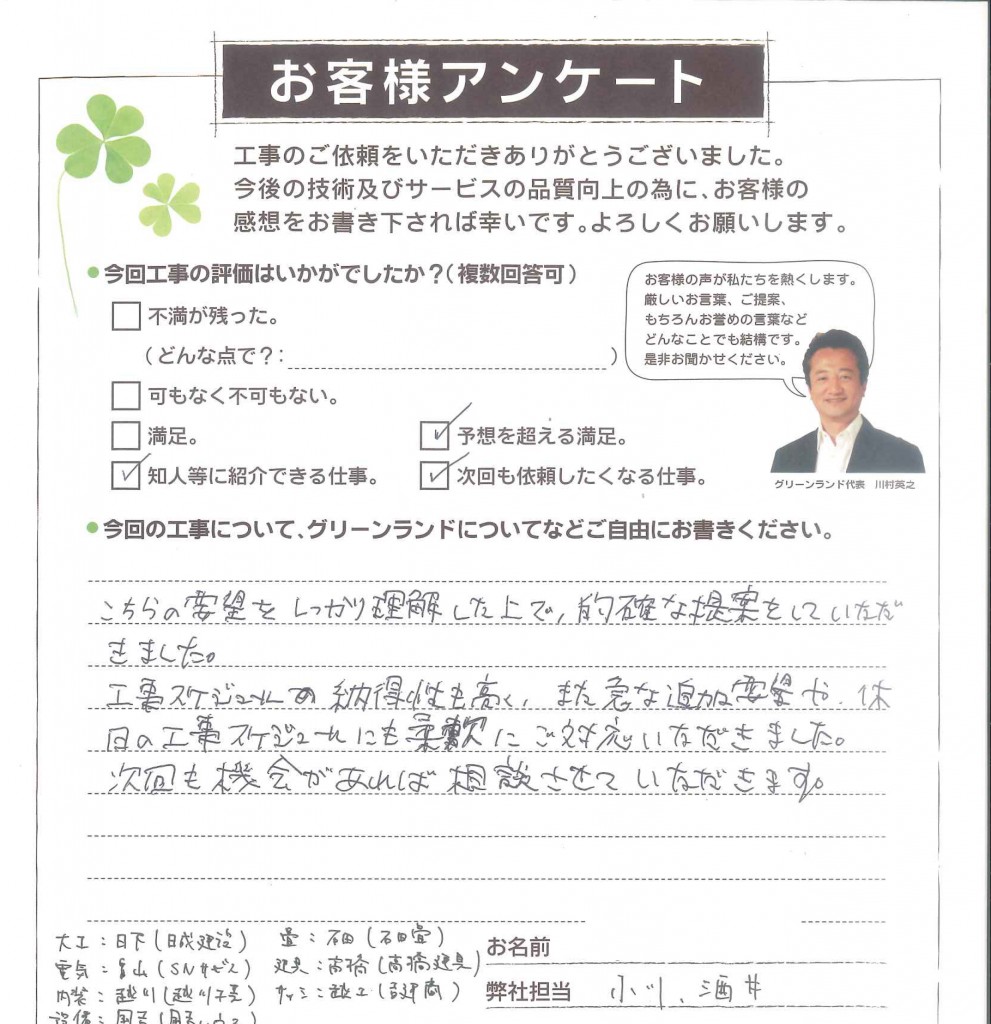 お客様アンケート
工事のご依頼をいただきありがとうございました。
今後の技術及びサービスの品質向上の為に、お客様の
感想をお書き下されば幸いです。よろしくお願いします。
●今回工事の評価はいかがでしたか？（複数回答可）
お客様の声が私たちを熱くします。
厳しいお言葉、ご提案、
もちろんお誉めの言葉など
どんなことでも結構です。
是非お聞かせください。
不満が残った。
（どんな点で？： ）
可もなく不可もない。
満足。 予想を超える満足。
知人等に紹介できる仕事。 次回も依頼したくなる仕事。
グリーンランド代表 川村英之
●今回の工事について、グリーンランドについてなどご自由にお書きください。
こちらの要望をしっかり理解した上で、的確な提案をしていただ
きました。
工事スケジュールの納得性も高く、また急な追加要望や、休
日の工事スケジュールにも柔軟にご対応いただきました。
次回も機会があれば相談させていただきます。
大工：日下（日成建設） 畳：石田（石田畳）
電気： 山（SNサービス） 建具：高橋（高橋建具）
内装：越川（越川 ） サッシ：
設備：
お名前
弊社担当 小川、酒井